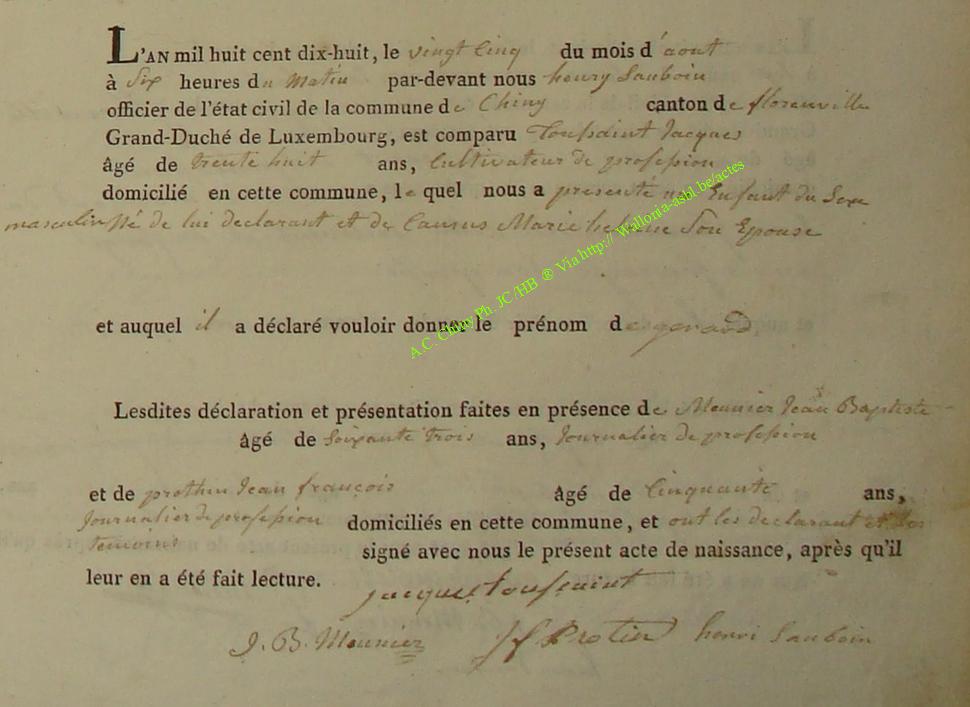 L'AN mil huit cent dix-huit, le vingt Cinq du mois d'aout
à Six heures du Matin par-devant nous henry Sauboin
officier de l'état civil de la commune de Chiny canton de florenville
Grand-Duché de Luxembourg, est comparu Toussaint Jacques
âgé de trente huit ans, Cultivateur de profession
domicilié en cette commune, le quel nous a presenté un Enfant du Sexe
masculin Né de lui declarant et de Marie Son Epouse
et auquel il a déclaré vouloir donner le prénom de gerard
Lesdites déclaration et présentation faites en présence de Meunier Jean Baptiste
âgé de Soixante trois ans, Journalier de profession
et de prothin Jean françois âgé de Cinquante ans,
Journalier de profession domiciliés en cette commune, et ont les declarant et les
temoins signé avec nous le présent acte de naissance, après qu'il
leur en a été fait lecture.
jacques toussaint
J. B. Meunier JF Protin henri Sauboin
A.C. Chiny Ph. JC/HB ® Via http:// Wallonia-asbl.be/actes